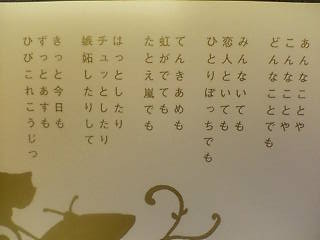 あんなことや
こんなことや
どんなことでも
みんないても
恋人といても
ひとりぼっちでも
てんきあめも
虹がでても
たとえ嵐でも
はっとしたり
チュッとしたり
嫉妬したりして
きっと今日も
ずっとあすも
ひびこれこうじつ